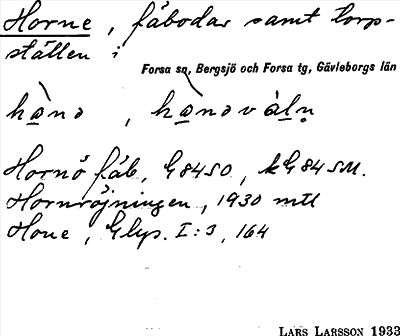 Horne, fäbodar samt torp-
ställen i
Forsa sn, Bergsjö och Forsa tg, Gävleborgs län
Hornö fäb, G84SO, kG84SM.
Hornröjningen, 1930 mtl
Hone, Glyp. I:3, 164
LARS LARSSON 1933